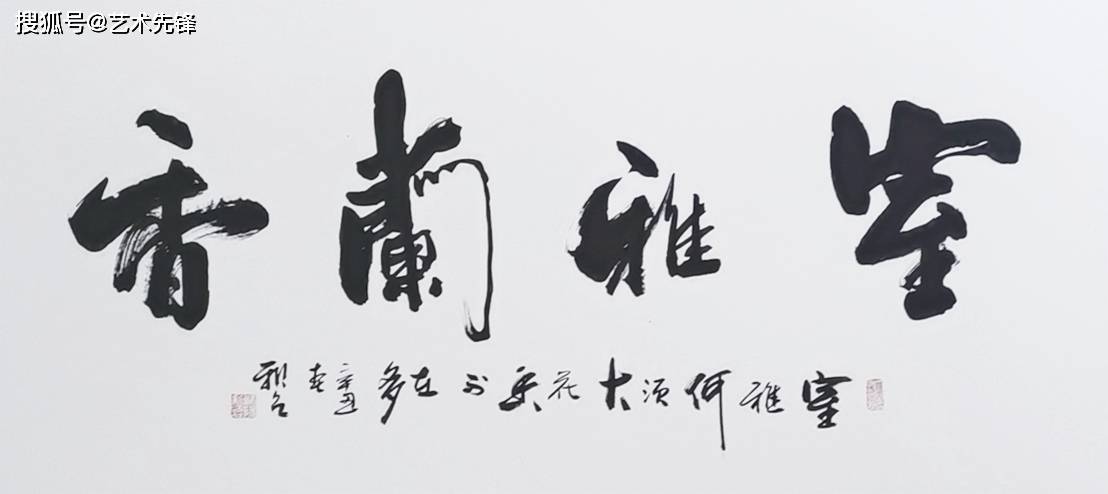 搜狐号@艺术先锋
室雅蘭香
室雅何须大花香不在多辛丑春